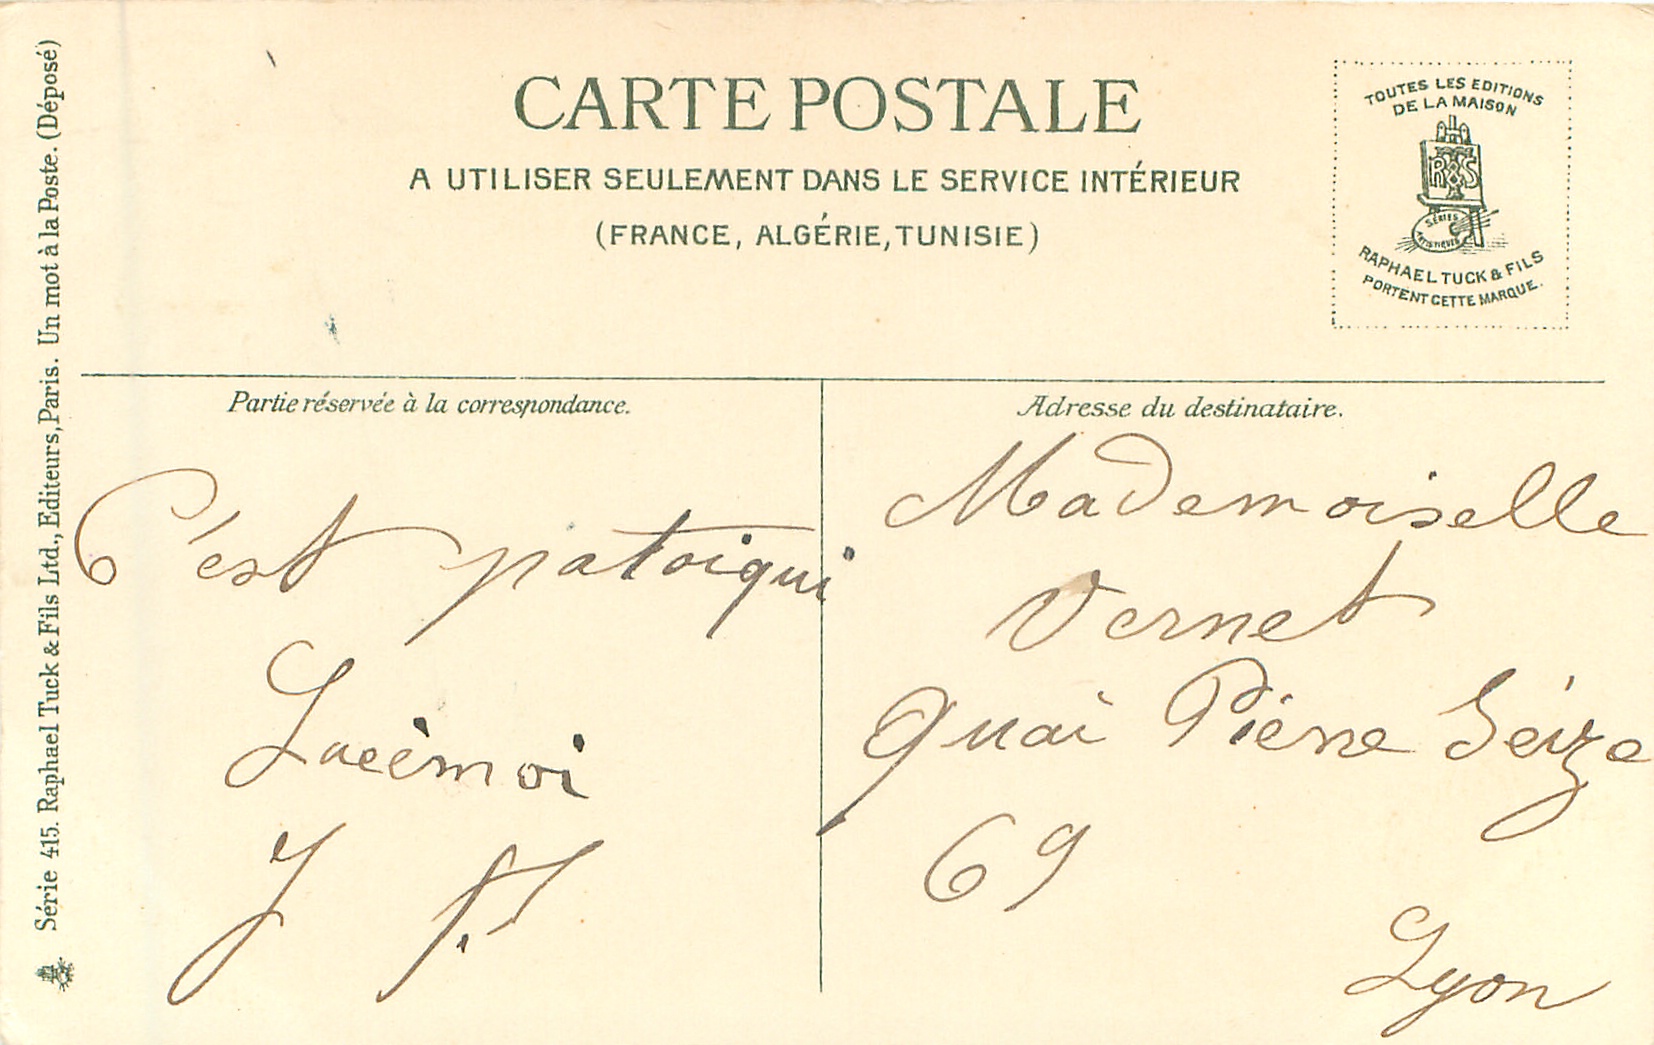 CARTE POSTALE
A UTILISER SEULEMENT DANS LE SERVICE INTÉRIEUR
(FRANCE, ALGÉRIE, TUNISIE)
TOUTES LES EDITIONS
DE LA MAISON
RTS
SÉRIES
ARTISTIQUES
RAPHAEL TUCK & FILS
PORTENT CETTE MARQUE.
Série 415. Raphael Tuck & Fils Ltd., Editeurs, Paris. Un mot à la Poste. (Déposé)
Partie réservée à la correspondance.
C'est patoiqui
Lacémoi
J
Adresse du destinataire.
Mademoiselle
Vernet
Quai Piérre Séize
69
Lyon